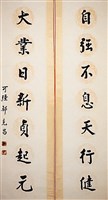 自强不息天行健
大業日新貞起元